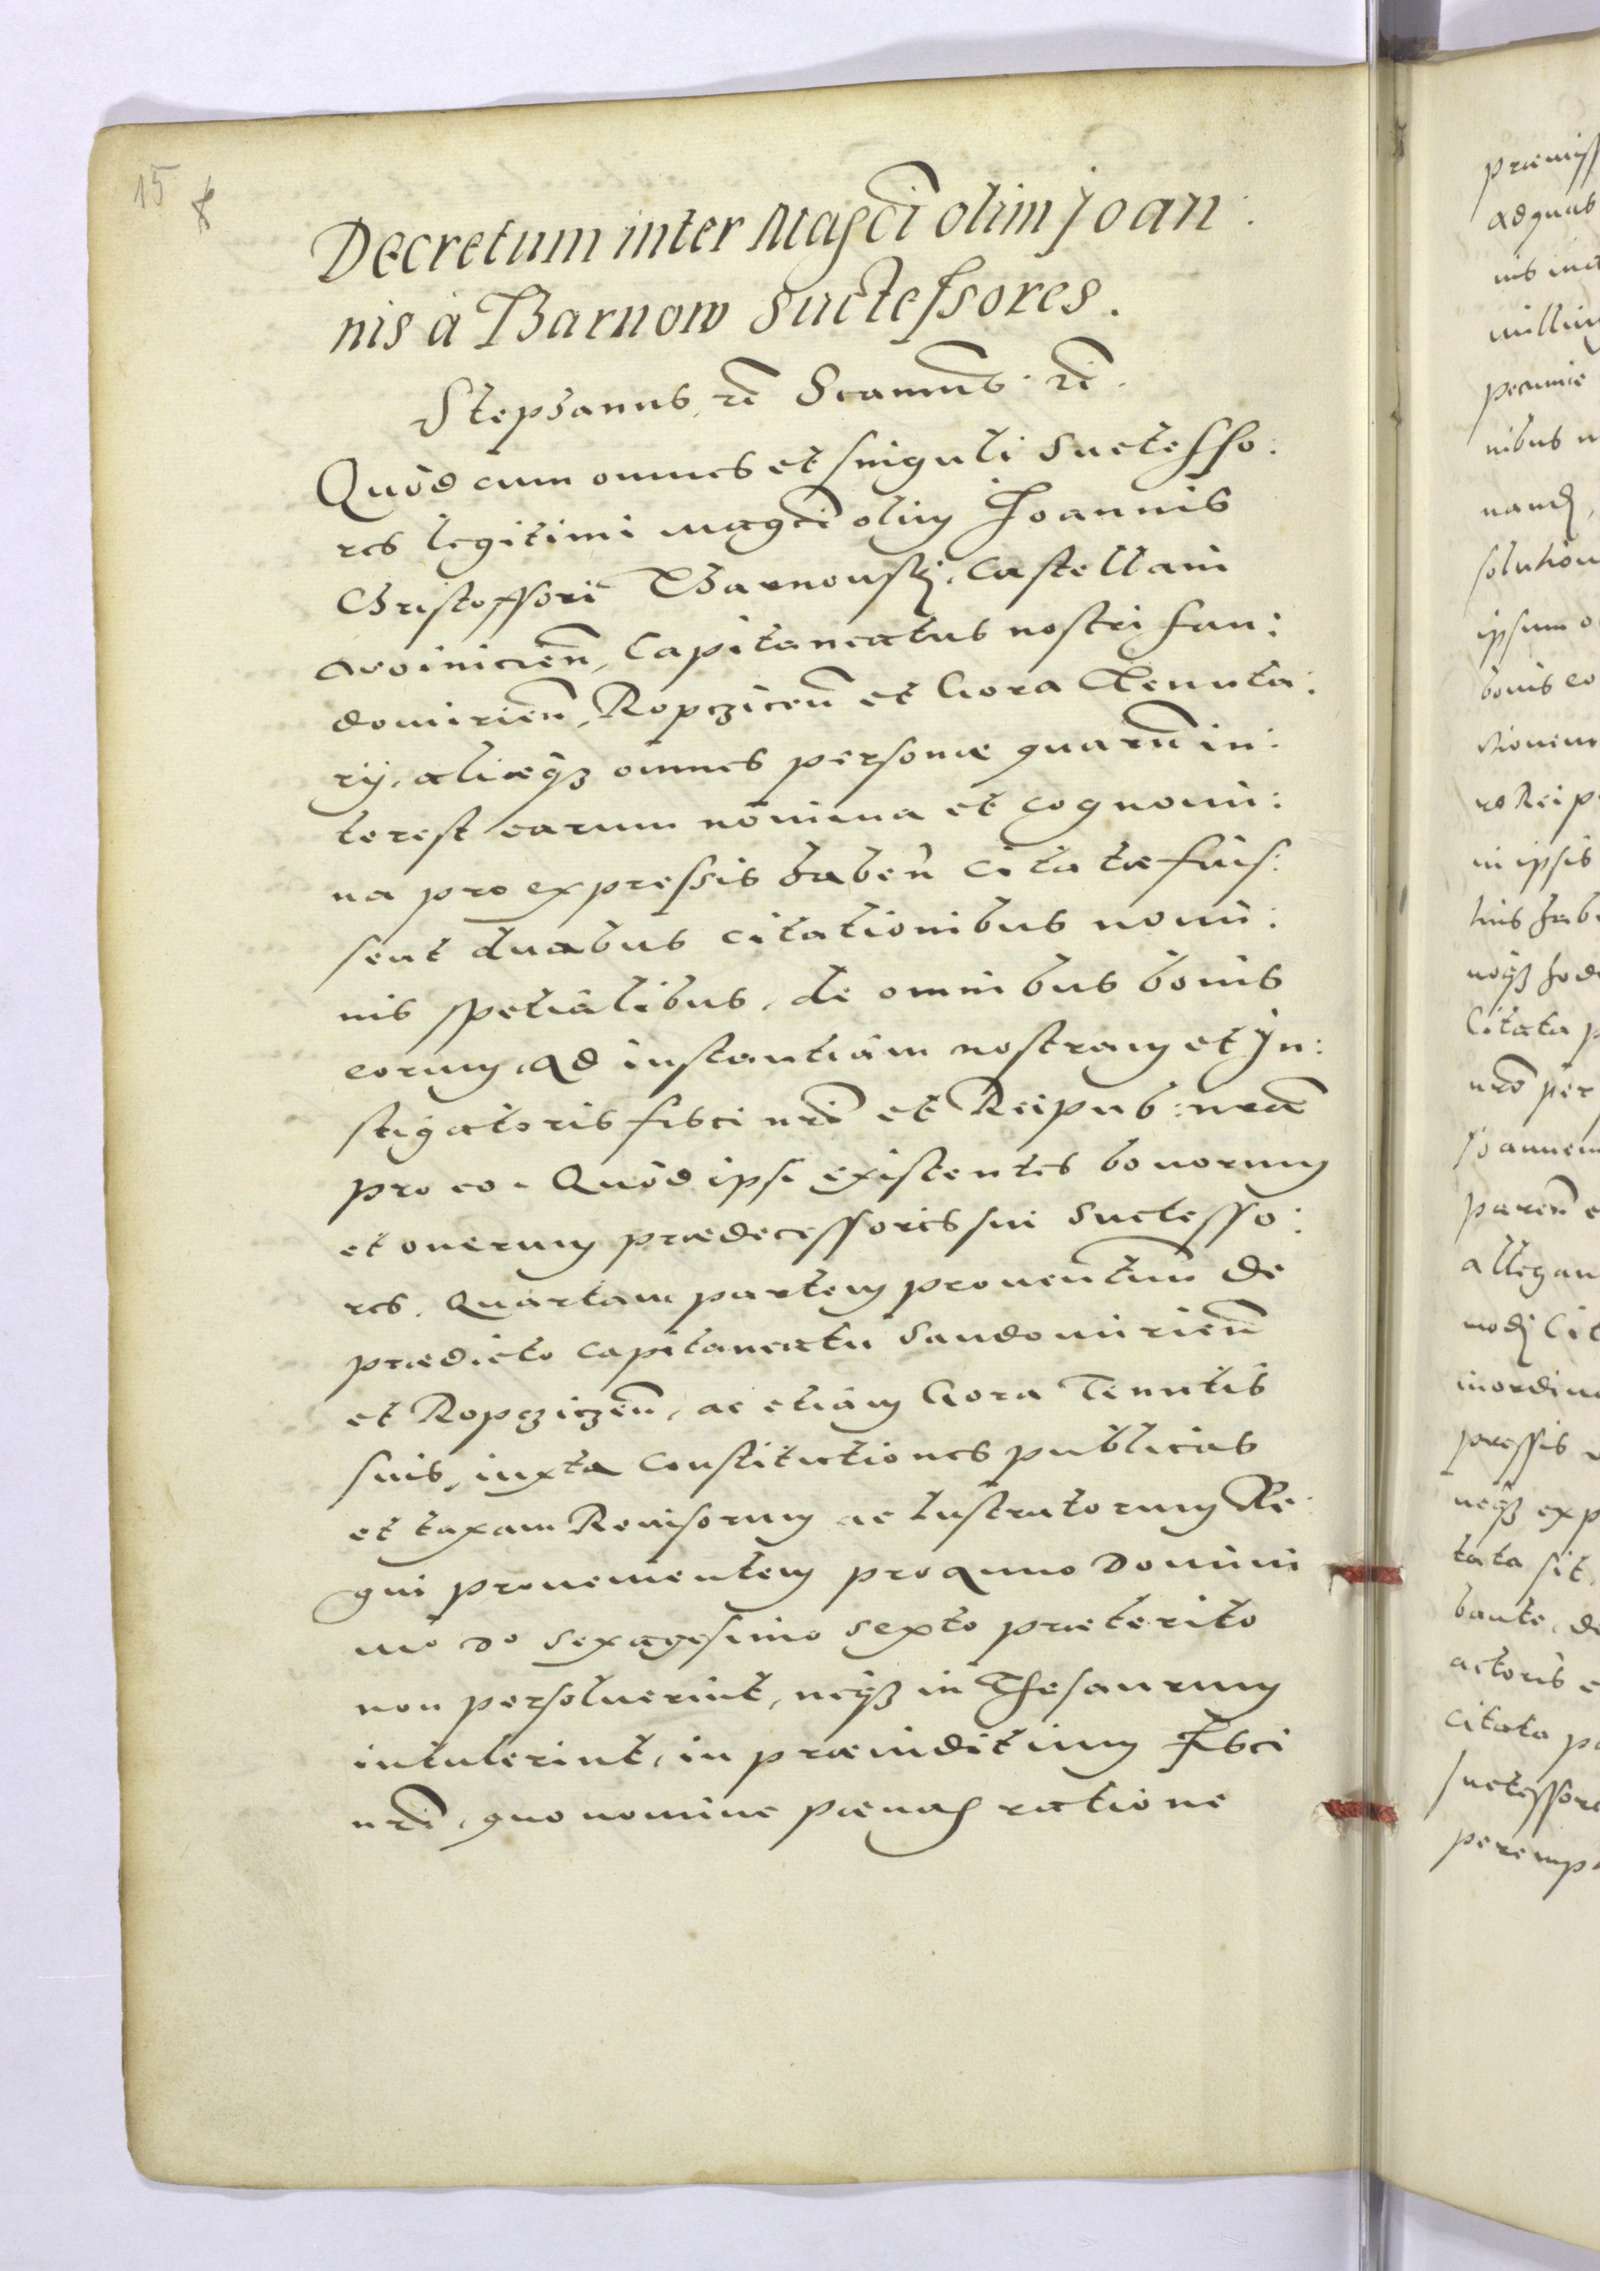 15
Decretum inter Magci olim Joan:
nis à Tarnow Successores.
Stephanus, rc Scamus: rc.
Quòd cum omnes et singuli Successo:
res legitimi magci olim Joannis
Christophori Tarnowskj, Castellani
Woinicien, Capitaneatus nostri San:
domirien, Ropczicen et Gora Tenuta:
rij, aliæqз omnes personæ quarū in:
terest earum nomina et cognomi:
na pro expressis haben citatæ fuis:
sent duabus citationibus nomi:
nis spetialibus, de omnibus bonis
eorum, ad instantiam nostram et In:
stigatoris fisci nri et Reipub: nræ
pro eo. Quòd ipsi existentes bonorum
et onerum prædecessoris sui Successo:
res, Quartam partem prouentuum de
prædicto Capitaneatu Sandomirien
et Ropcziczen, ac etiam Gora Tenutis
suis, iuxta Constitutiones publicas
et taxam Reuisorum ac lustratorum Re:
gni prouenientem pro Anno Domini
mo do sexagesimo sexto præterito
non persoluerint, neqз in Thesaurum
intulerint, in præiuditium fisci
nri, quo nomine pænas ratione
præmiss
ad quas
millim
pecuniæ
nibus
solution
ipsum
bonis
in ipsis
Citata p
nro per
Joannem
paren
allegan
modj Cit
inordin
neqз exp
tata sit,
bante, de
actoris
citata pa
successore
peremp